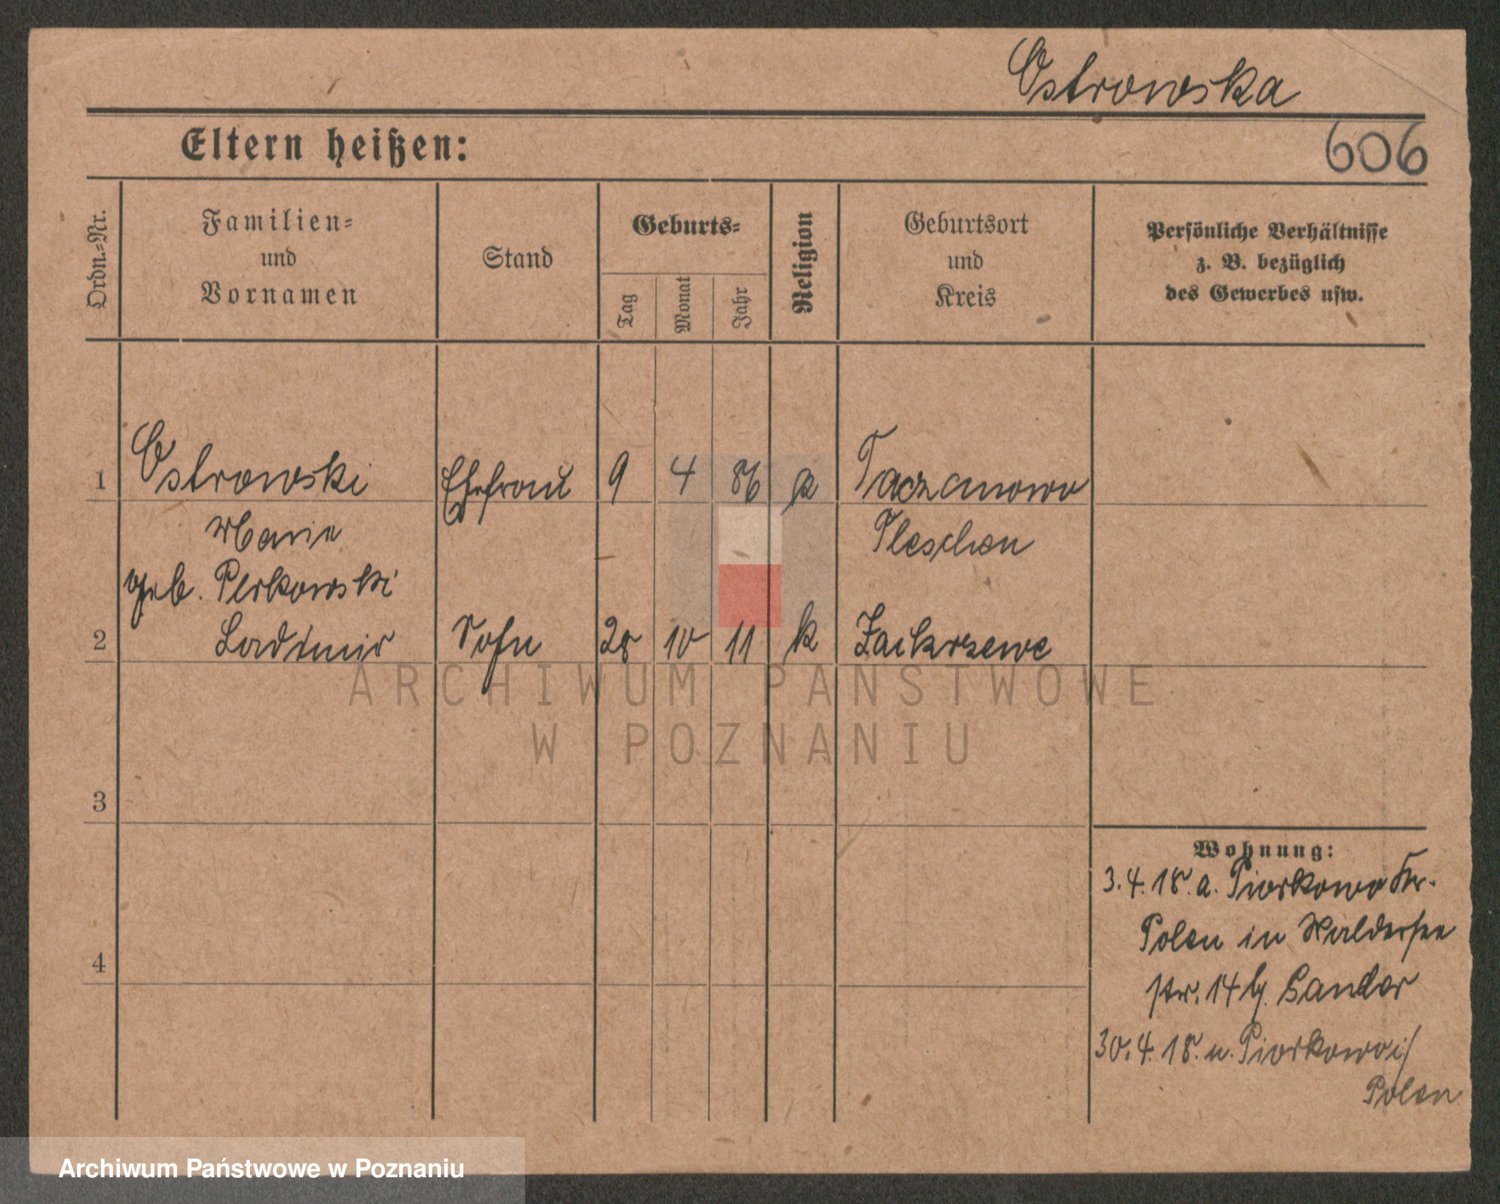 Ostrowska
Eltern heißen:
606
Ordn.-Nr.
Familien-
und
Vornamen
Stand
Geburts-
Tag
Monat
Jahr
Religion
Geburtsort
und
Kreis
Persönliche Verhältnisse
z. B. bezüglich
des Gewerbes usw.
1 Ostrowski Ehefrau 9 4 86 k Taczanowo
Marie Pleschen
geb. Perkowski
2 Ladimir Sohn 28 10 11 k Zackrzewe
ARCHIWUM PAŃSTWOWE
W POZNANIU
3
Wohnung:
3.4.18. a. Piorkowo Kr.
Polen in Waldersee
4
str. 14 b. Sander
30.4.18. n. Piorkowo i/
Polen
Archiwum Państwowe w Poznaniu